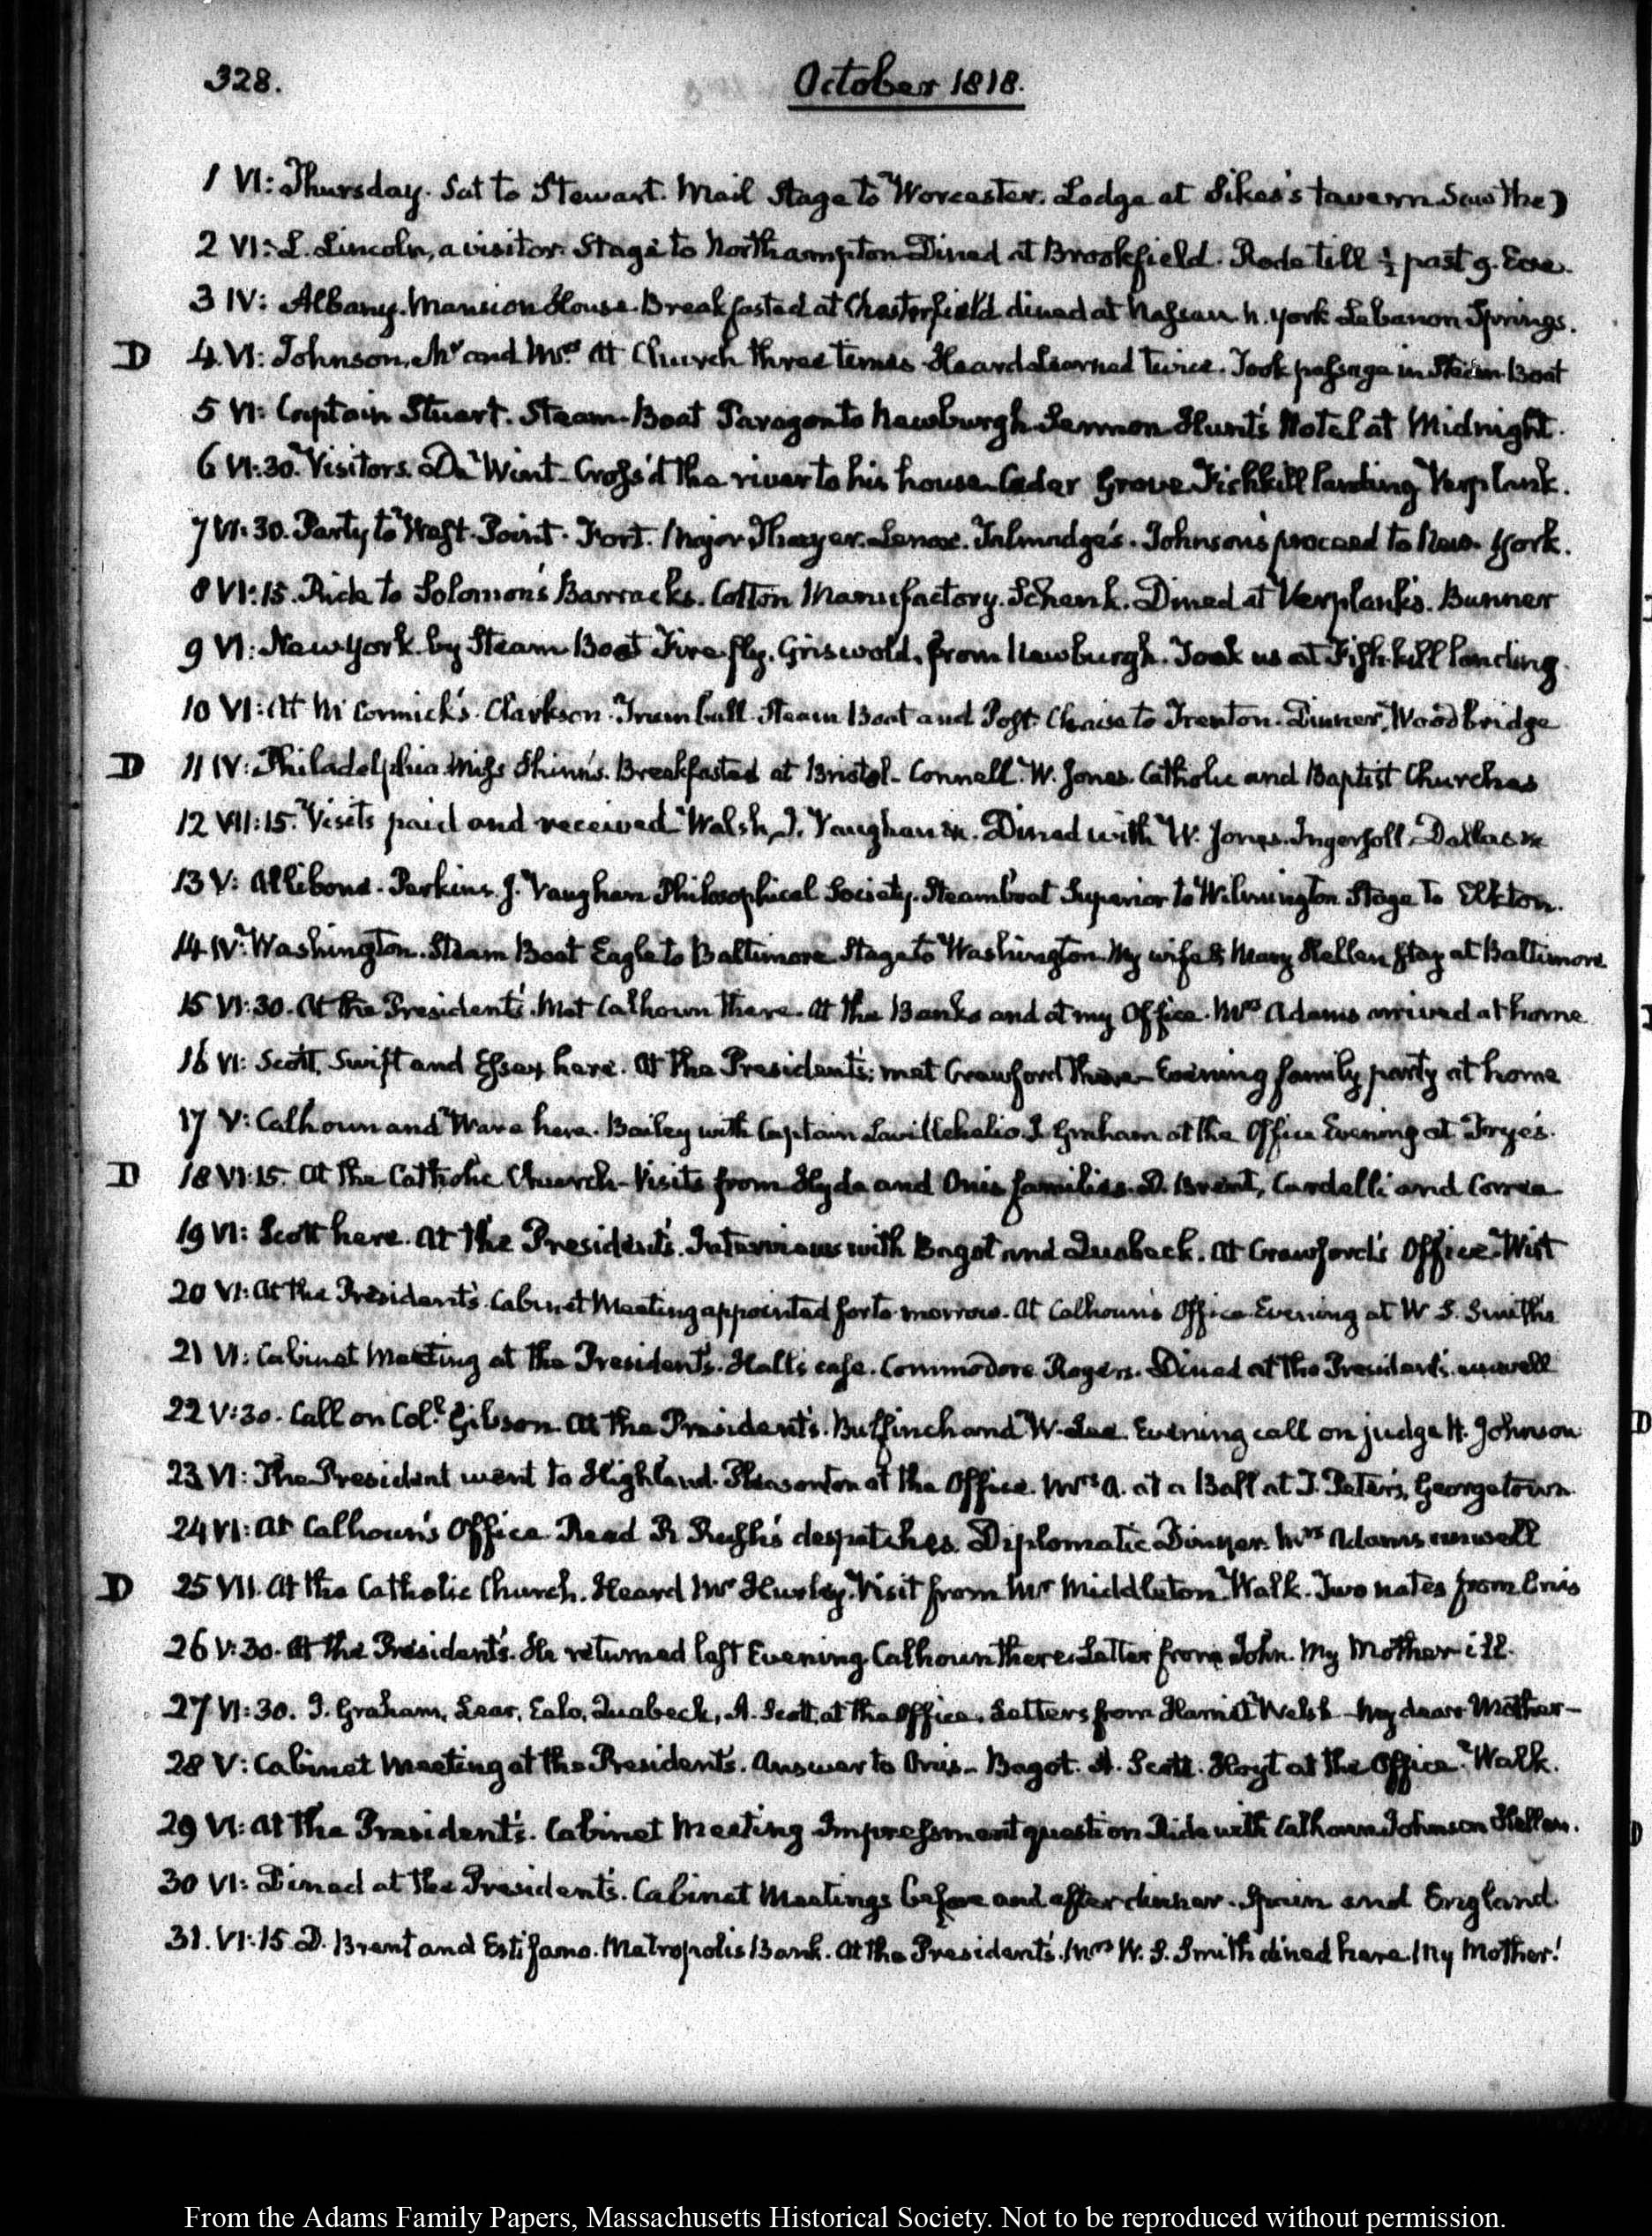 328.
October 1818.
1 VI: Thursday. Sat to Stewart. Mail Stage to Worcester. Lodge at Sikes's tavern Saw the )
2 VI: L. Lincoln, a visitor. Stage to Northampton Dined at Brookfield. Rode till ½ past 9. Eve.
3 IV: Albany. Mansion House. Breakfasted at Chesterfield dined at Nassau N. York Lebanon Springs.
D 4. VI: Johnson, Mr and Mrs. At Church three times Heard Learned twice. Took passage in Steam Boat
5 VI: Captain Stuart. Steam-Boat Paragon to Newburgh Lemmon Hunt's Hotel at Midnight.
6 VI:30. Visitors. De Wint. Cross'd the river to his house Cedar Grove Fishkill landing Verplank.
7 VI:30. Party to West-Point. Fort. Major Thayer. Lenox. Talmadge's. Johnsons proceed to New-York.
8 VI:15. Ride to Solomon's Barracks. Cotton Manufactory. Schenk. Dined at Verplank's. Bunner
9 VI: New York by Steam Boat Fire fly. Griswold, from Newburgh. Took us at Fish-kill landing.
10 VI: At McCormick's. Clarkson. Trumbull. Steam Boat and Post Chaise to Trenton. Dinner, Woodbridge
D 11 IV: Philadelphia Miss Shinn's. Breakfasted at Bristol. Connell. W. Jones. Catholic and Baptist Churches
12 VII:15. Visits paid and received Walsh, J. Vaughan &c. Dined with W. Jones. Ingersoll. Dallas &c
13 V: Allibone. Perkins. J. Vaughan Philosophical Society. Steamboat Superior to Wilmington Stage to Elkton.
14 IV: Washington. Steam Boat Eagle to Baltimore Stage to Washington. My wife & Mary Hellen stay at Baltimore
15 VI:30. At the President's. Met Calhoun there. At the Banks and at my Office. Mrs Adams arrived at home
16 VI: Scott, Swift and Essex here. At the President's; met Crawford there. Evening family party at home
17 V: Calhoun and Ware here. Bailey with Captain J. Graham at the Office Evening at Frye's.
D 18 VI:15. At the Catholic Church. Visits from Hyde and Onis families. D. Brent, Cardelli and Correa
19 VI: Scott here. At the President's. Interviews with Bagot and Quabeck. At Crawford's Office. Wirt
20 VI: At the President's. Cabinet Meeting appointed for to-morrow. At Calhoun's Office. Evening at W S. Smith's
21 VI: Cabinet Meeting at the President's. Hall's case. Commodore Rogers. Dined at the President's. unwell
22 V:30. Call on Coll. Gibson. At the President's. Bulfinch and W. Lee. Evening call on judge H. Johnson
23 VI: The President went to Highland. Pleasonton at the Office. Mrs A. at a Ball at T. Peter's, Georgetown
24 VI: At Calhoun's Office. Read R. Rush's despatches. Diplomatic Dinner. Mrs Adams unwell
D 25 VII. At the Catholic Church. Heard Mr Hurley. Visit from Mr Middleton. Walk. Two notes from Onis
26 V:30. At the President's. He returned last Evening. Calhoun there. Letter from John. My Mother ill.
27 VI:30. J. Graham, Lear, Quabeck, A. Scott, at the Office. Letters from Harriet Welsh. My dear Mother—
28 V: Cabinet Meeting at the President's. Answer to Onis. Bagot. A. Scott. Hoyt at the Office. Walk.
29 VI: At the President's. Cabinet Meeting Impressment question Ride with Calhoun Johnson Hellen.
30 VI: Dined at the President's. Cabinet Meetings before and after dinner. Spain and England
31. VI:15 D. Brent and Estifano. Metropolis Bank. At the President's. Mrs W. S. Smith dined here. My Mother!
From the Adams Family Papers, Massachusetts Historical Society. Not to be reproduced without permission.